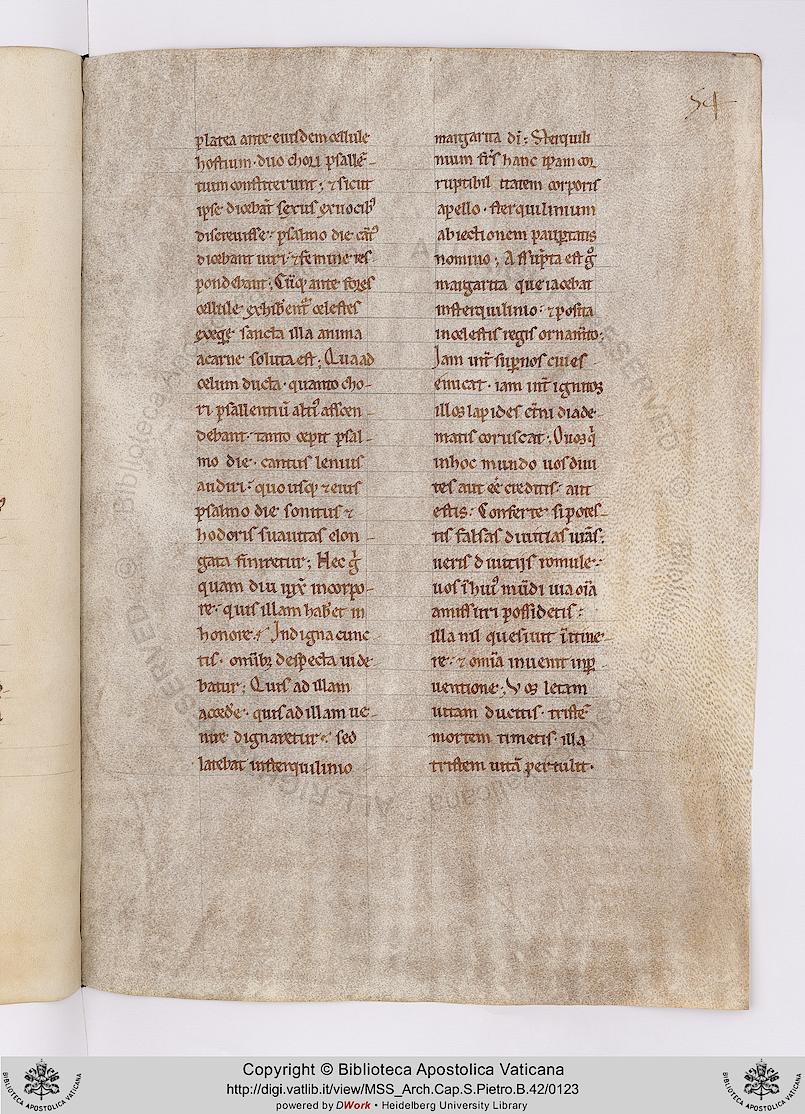 54
platea ante eiusdem cellule
hostium · duo chori psallē-
tium constiterunt ; & sicut
ipse dicebāt sexus ex uocibꝰ
discreuisse · psalmodie cātꝰ
dicebant uiri · & femine res
pondebant ; Cūq; ante fores
cellule exhibent᷑ celestes
exeqe · sancta illa anima
a carne soluta est ; Qua ad
celum ducta · quanto cho-
ri psallentiū altiꝰ ascen-
debant · tanto cepit psal-
modie · cantus lenius
audiri · quousq; & eius
psalmodie sonitus &
hodoris suauitas elon-
gata finiretur ; Hec gͥ
quam diu uix̄ in corpo-
re · quis illam haberet in
honore · Indigna cunc-
tis · omībꝫ despecta uide-
batur ; Quis ad illam
accede · quis ad illam ue-
nire dignaretur · sed
latebat in sterquilinio
margarita dī : Sterquili
nium fr̄s hanc ipsam cor
ruptibilitatem corporis
apello · sterquilinium
abiectionem paupertatis
nomino ; Assūpta est gͦ
margarita que iacebat
in sterquilinio · & posita
in celestis regis ornamto ·
Iam int̄ supnos ciues
emicat · iam int̄ ignitos
illos lapides etni diade-
matis coruscat ; O uos qͥ
in hoc mundo uos diui
tes aut eē creditis · aut
estis · Conferte si potes-
tis falsas diuitias urās ·
ueris diuitijs romule ·
uos ī huiꝰ mūdi uia oīa
amissuri possidetis :
illa nil quesiuit ī itine
re · & omīa inuenit in p
uentione ; Vos letam
uitam ducitis · tristē
mortem timetis · illa
tristem uitā pertulit ·
Copyright © Biblioteca Apostolica Vaticana
http://digi.vatlib.it/view/MSS_Arch.Cap.S.Pietro.B.42/0123
powered by DWork • Heidelberg University Library
BIBLIOTECA APOSTOLICA VATICANA
BIBLIOTECA APOSTOLICA VATICANA